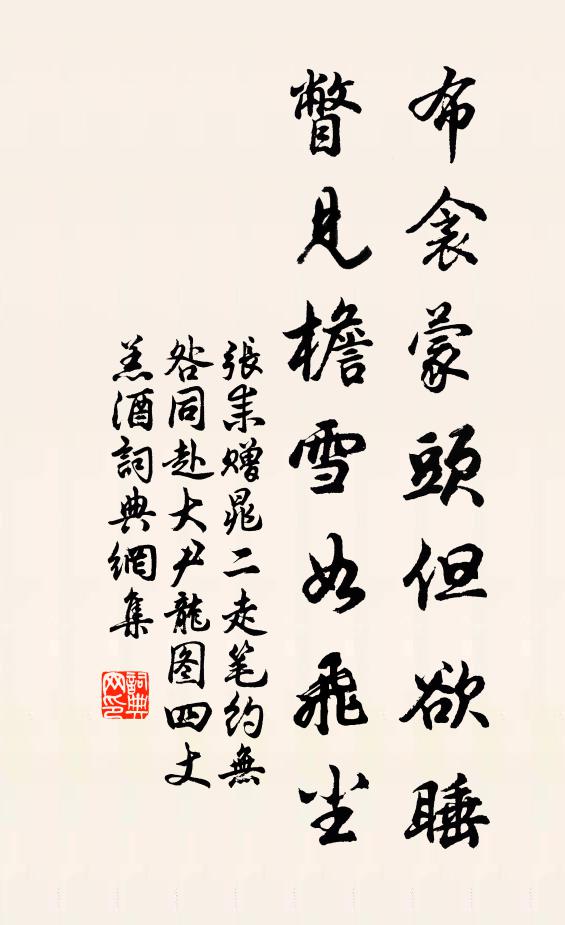 布衾蒙頭但欲睡
瞥見檐雪如飛尘
張耒赠晁二走笔约無
咎同赴大尹龍图四丈
羔酒詞典網集
詞典网印